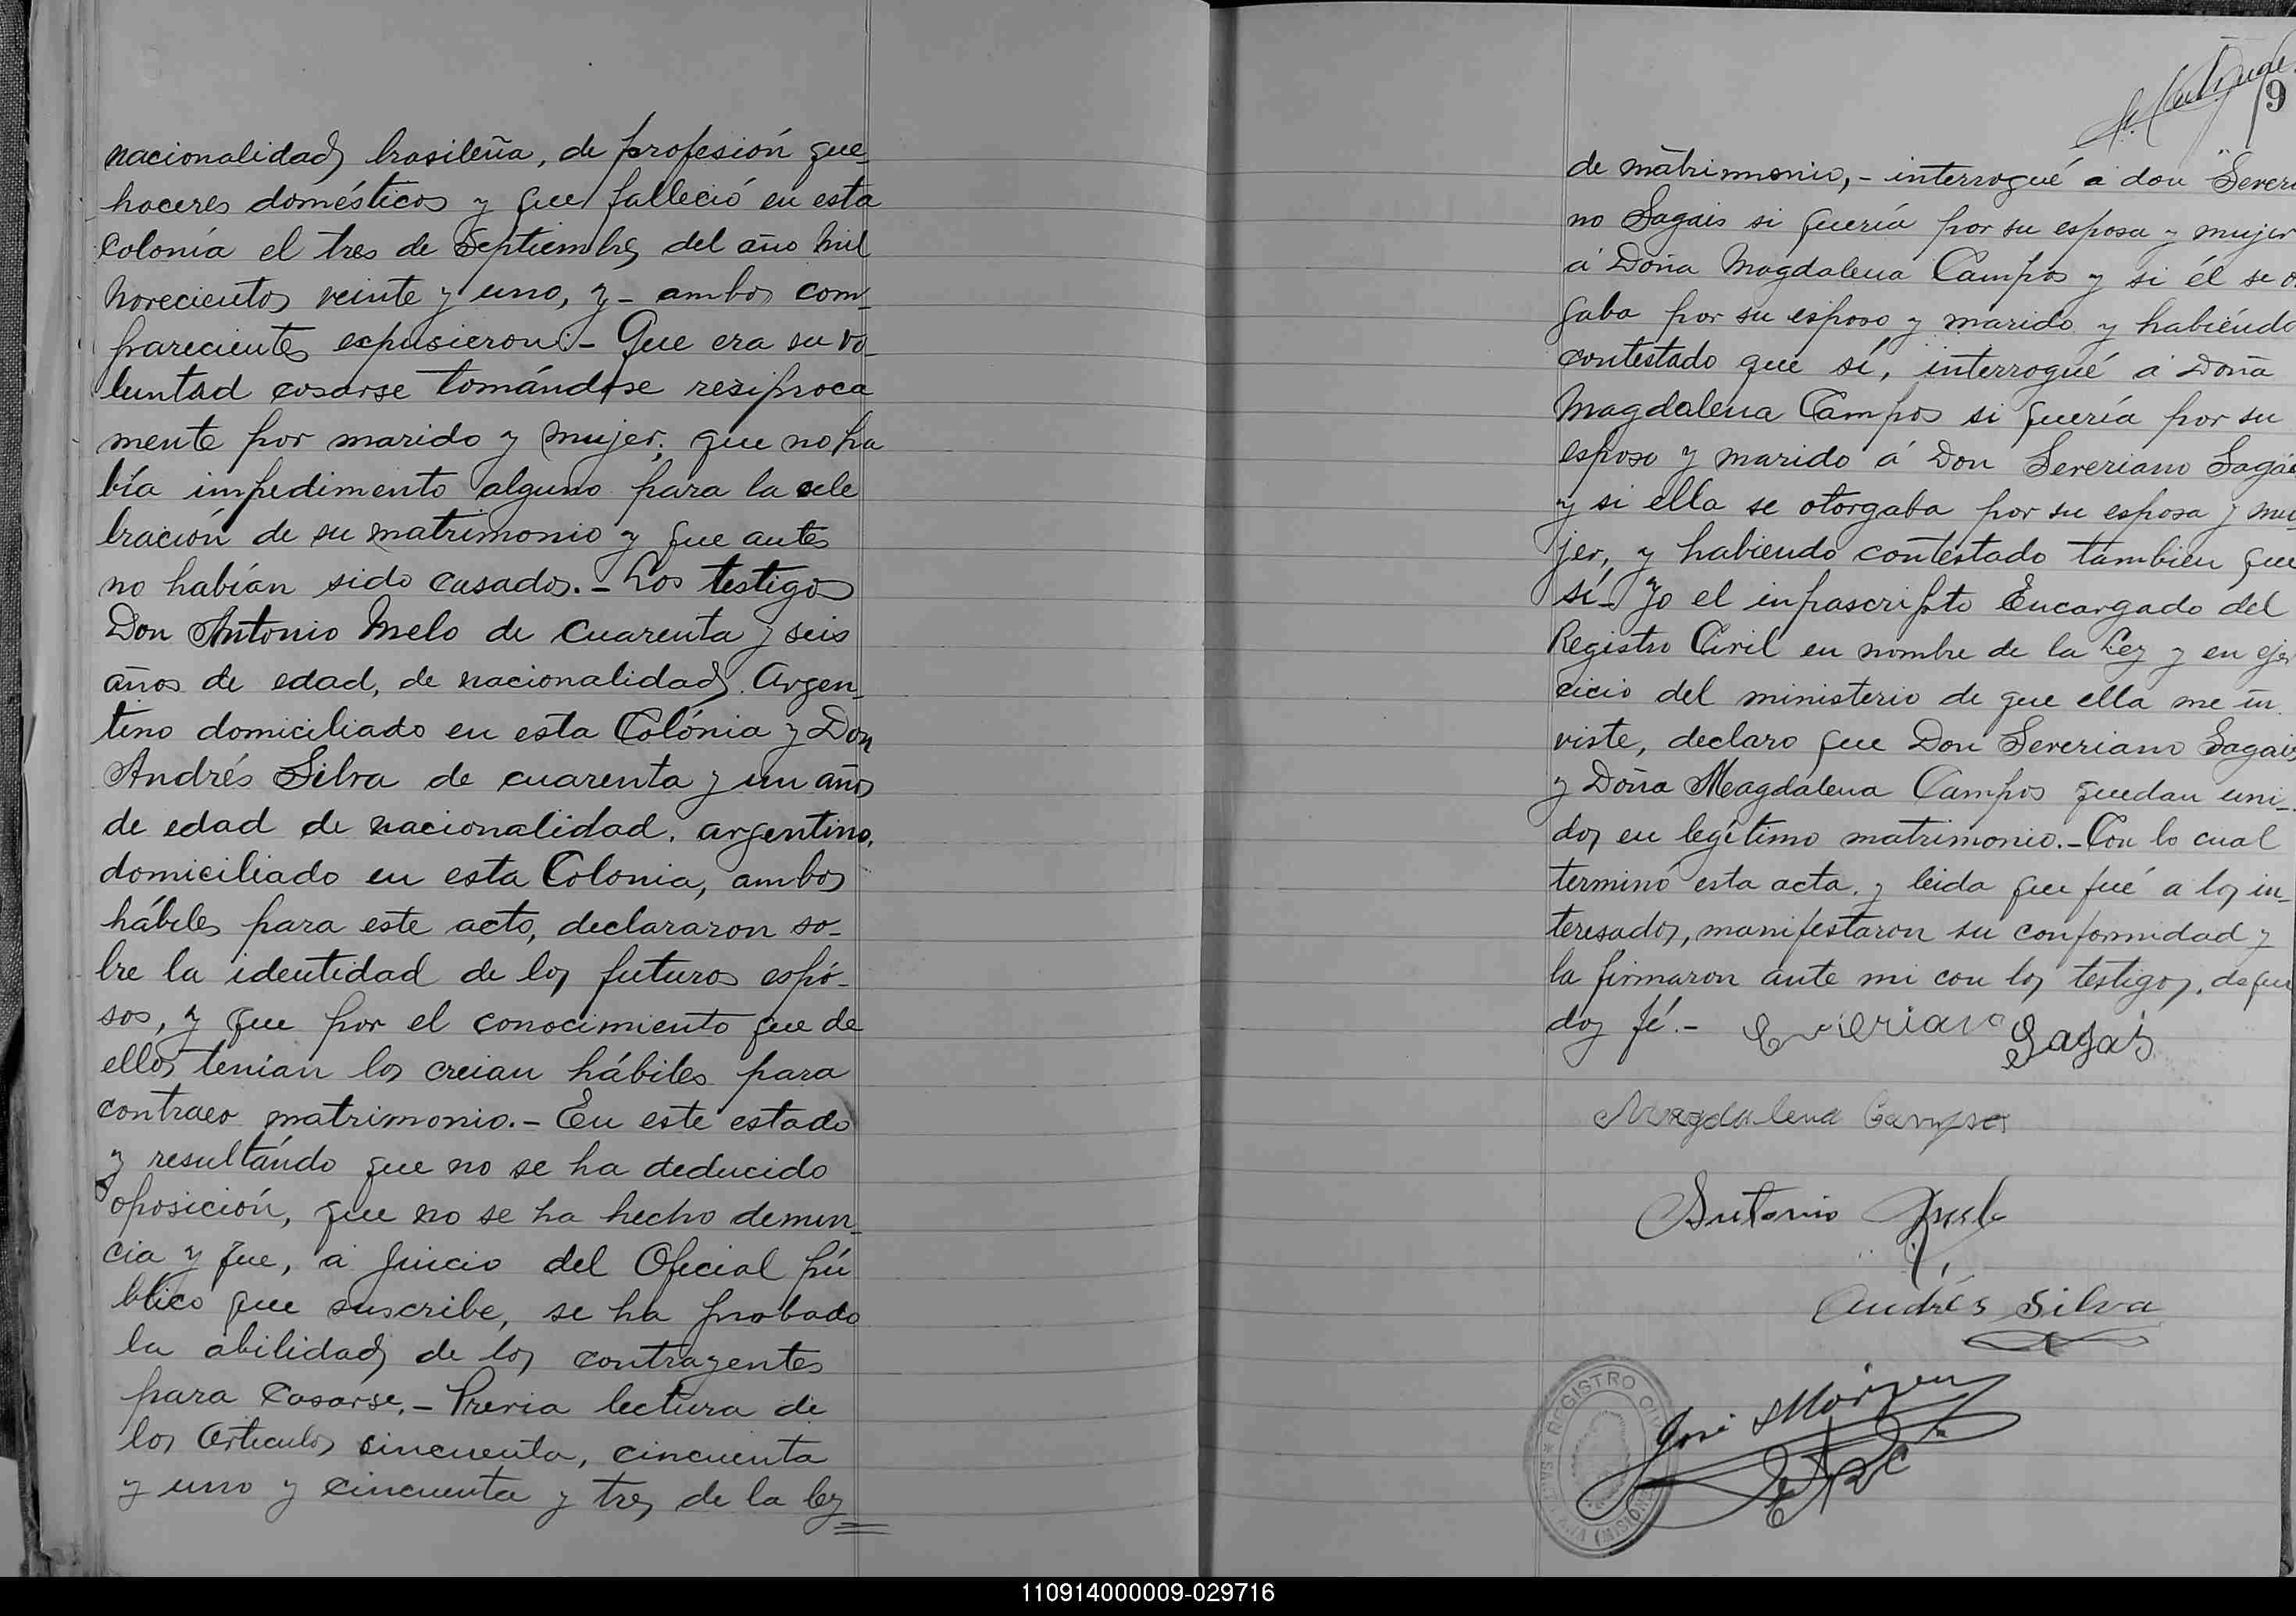 nacionalidad brasileña, de profesión que_
haceres domésticos y que falleció en esta
Colonia el tres de Septiembre del año mil
novecientos veinte y uno, y - ambos com_
parecientes expusieron: - Que era su vo_
luntad casarse tomándose resiproca
mente por marido y mujer; que no ha
bía impedimento alguno para la cele
bración de su matrimonio y que antes
no habían sido casados. - Los testigos
Don Antonio Melo de cuarenta y seis
años de edad, de nacionalidad Argen_
tino domiciliado en esta Colónia y Don
Andrés Silva de cuarenta y un años
de edad de nacionalidad argentino,
domiciliado en esta Colonia, ambos
hábiles para este acto, declararon so_
bre la identidad de los futuros espó_
sos, y que por el conocimiento que de
ellos tenían los creian hábiles para
contraer matrimonio. - En este estado
y resultándo que no se ha deducido
oposición, que no se ha hecho denun_
cia y que, a juicio del Oficial pú
blico que suscribe, se ha probado
la abilidad de los contrayentes
para casarse. - Previa lectura de
los Articulos sincuenta, cincuenta
y uno y cincuenta y tres de la ley
9
de matrimonio, - interrogué a don Severi
no Sagais si quería por su esposa y mujer
á Doña Magdalena Campos y si él se o
gaba por su esposo y marido y habiéndo
contestado que sí, interrogué á Doña
Magdalena Campos si quería por su
esposo y marido á Don Severiano Sagáis
y si ella se otorgaba por su esposa y mu_
jer, y habiendo contestado tambien que
sí - Yo el infrascripto Encargado del
Registro Civil en nombre de la Ley y en ejer
cicio del ministerio de que ella me in
viste, declaro que Don Severiano Sagais
y Doña Magdalena Campos quedan uni_
dos en legítimo matrimonio. - Con lo cual
terminó esta acta, y leida que fué a los in_
teresados, manifestaron su conformidad y
la firmaron ante mi con los testigos, de que
doy fé. - Severiano Sagais
Magdalena Campos
Antonio
Andrés Silva
REGISTRO CIVIL
José
(MISIONES)
110914000009-029716